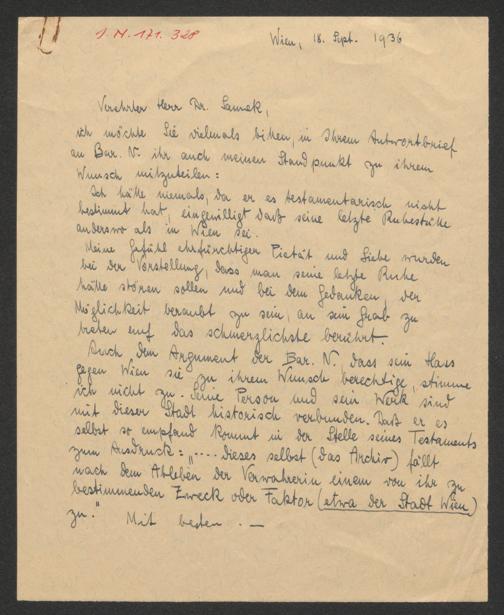 I.N. 171.328
Wien, 18. Sept. 1936
Verehrter Herr Dr. Samek,
ich möchte Sie vielmals bitten, in Ihrem Antwortbrief
an Bar. N. ihr auch meinen Standpunkt zu ihrem
Wunsch mitzuteilen:
Ich hätte niemals, da er es testamentarisch nicht
bestimmt hat, eingewilligt daß seine letzte Ruhestätte
anderswo als in Wien sei.
Meine Gefühle ehrfürchtiger Pietät und Liebe wurden
bei der Vorstellung, dass man seine letzte Ruhe
hätte stören sollen und bei dem Gedanken, der
Möglichkeit beraubt zu sein, an sein Grab zu
treten auf das schmerzlichste berührt.
Auch dem Argument der Bar. N. dass sein Hass
gegen Wien sie zu ihrem Wunsch berechtige, stimme
ich nicht zu. Seine Person und sein Werk sind
mit dieser Stadt historisch verbunden. Daß er es
selbst so empfand kommt in der Stelle seines Testaments
zum Ausdruck: „.... dieses selbst (das Archiv) fällt
nach dem Ableben der Verwahrerin einem von ihr zu
bestimmenden Zweck oder Faktor (etwa der Stadt Wien)
zu."
Mit besten . —